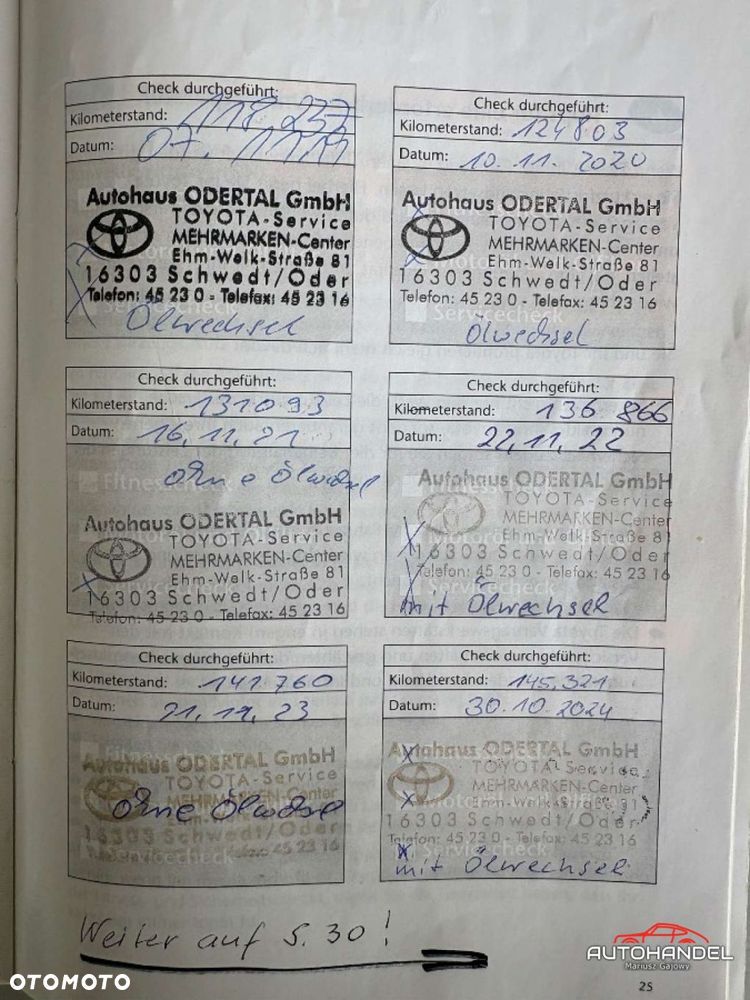 Check durchgeführt:
Kilometerstand: 118 237
Datum: 07. 11.19
Autohaus ODERTAL GmbH
TOYOTA-Service
MEHRMARKEN-Center
Ehm-Welk-Straße 81
16303 Schwedt/Oder
Telefon: 45 23 0 - Telefax: 45 23 16
Ölwechsel
Check durchgeführt:
Kilometerstand: 124803
Datum: 10. 11. 2020
Autohaus ODERTAL GmbH
TOYOTA-Service
MEHRMARKEN-Center
Ehm-Welk-Straße 81
16303 Schwedt/Oder
Telefon: 45 23 0 - Telefax: 45 23 16
Servicecheck
Ölwechsel
Check durchgeführt:
Kilometerstand: 131093
Datum: 16, 11, 21
Fitnesscheck
ohne Ölwechsel
Autohaus ODERTAL GmbH
TOYOTA-Service
MEHRMARKEN-Center
Ehm-Welk-Straße 81
16303 Schwedt/Oder
Telefon: 45 23 0 - Telefax: 45 23 16
Check durchgeführt:
Kilometerstand: 136 866
Datum: 22, 11, 22
Autohaus ODERTAL GmbH
TOYOTA-Service
MEHRMARKEN-Center
Ehm-Welk-Straße 81
16303 Schwedt/Oder
Telefon: 45 23 0 - Telefax: 45 23 16
mit Ölwechsel
Check durchgeführt:
Kilometerstand: 141 760
Datum: 21, 11, 23
Autohaus ODERTAL GmbH
TOYOTA-Service
MEHRMARKEN-Center
ohne Ölwechsel
16303 Schwedt/Oder
Servicecheck
Check durchgeführt:
Kilometerstand: 145,321
Datum: 30.10.2024
Autohaus ODERTAL GmbH
TOYOTA-Service
MEHRMARKEN-Center
Ehm-Welk-Straße 81
16303 Schwedt/Oder
Telefon: 45 23 0 - Telefax: 45 23 16
Servicecheck
mit Ölwechsel
Weiter auf S. 30 !
AUTOHANDEL
Mariusz Gajowy
25
OTOMOTO